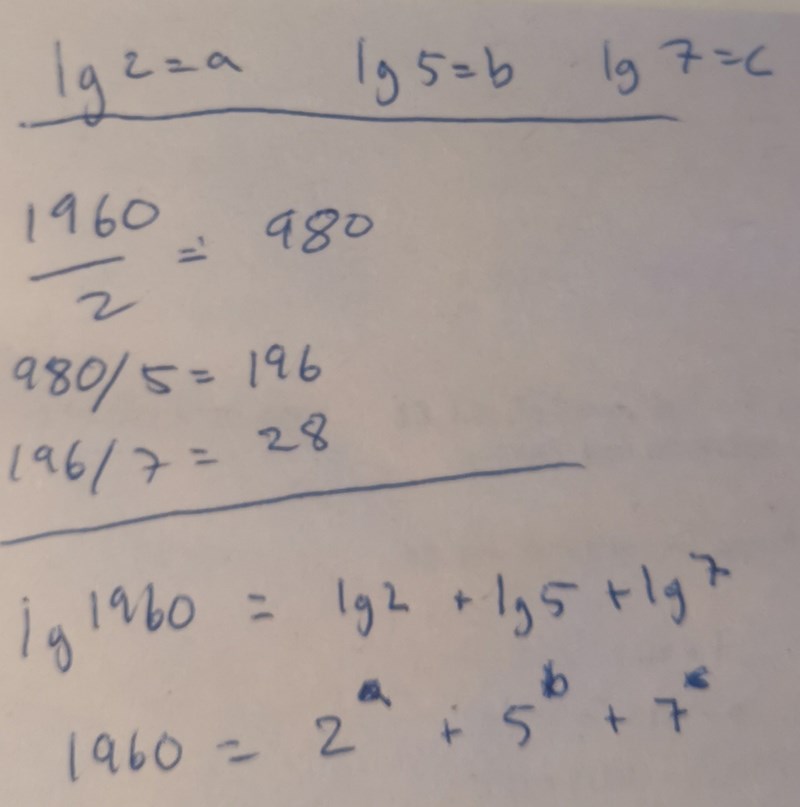 lg 2 = a lg 5 = b lg 7 = c
1960/2 = 980
980/5 = 196
196/7 = 28
lg 1960 = lg 2 + lg 5 + lg 7
1960 = 2^a + 5^b + 7^c